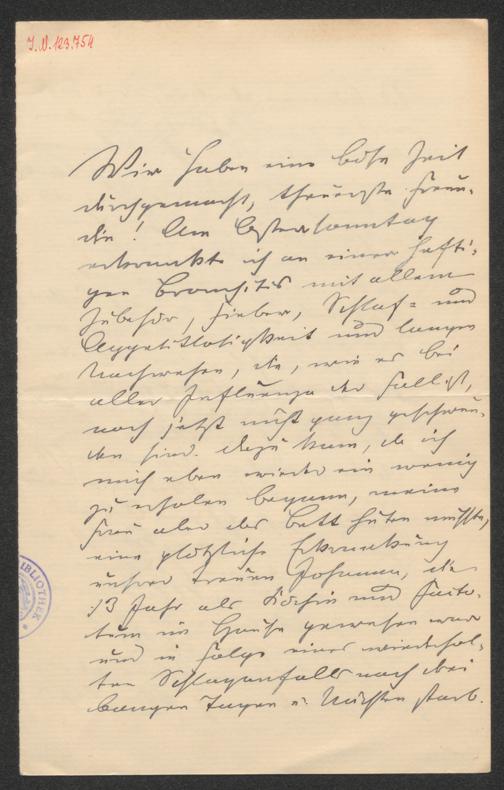 I.N. 123.754
Wir haben eine böse Zeit
durchgemacht, theuerste Freun-
din! Am Ostersonntag
erkrankte ich an einer hefti-
gen Bronchitis mit allem
Zubehör, Fieber, Schlaf- und
Appetitlosigkeit und langen
Nachwehen, die, wie es bei
aller Influenza der Fall ist,
noch jetzt nicht ganz geschwun-
den sind. Dazu kam, da ich
mich eben wieder ein wenig
zu erholen begann, meine
Frau aber das Bett hüten mußte,
eine plötzliche Erkrankung
unsrer treuen Johanna, die
13 Jahr als Köchin und Facto-
tum im Hause gewesen war
und in Folge eines wiederhol-
ten Schlaganfalls nach drei
bangen Tagen u. Nächten starb.
BIBLIOTHEK